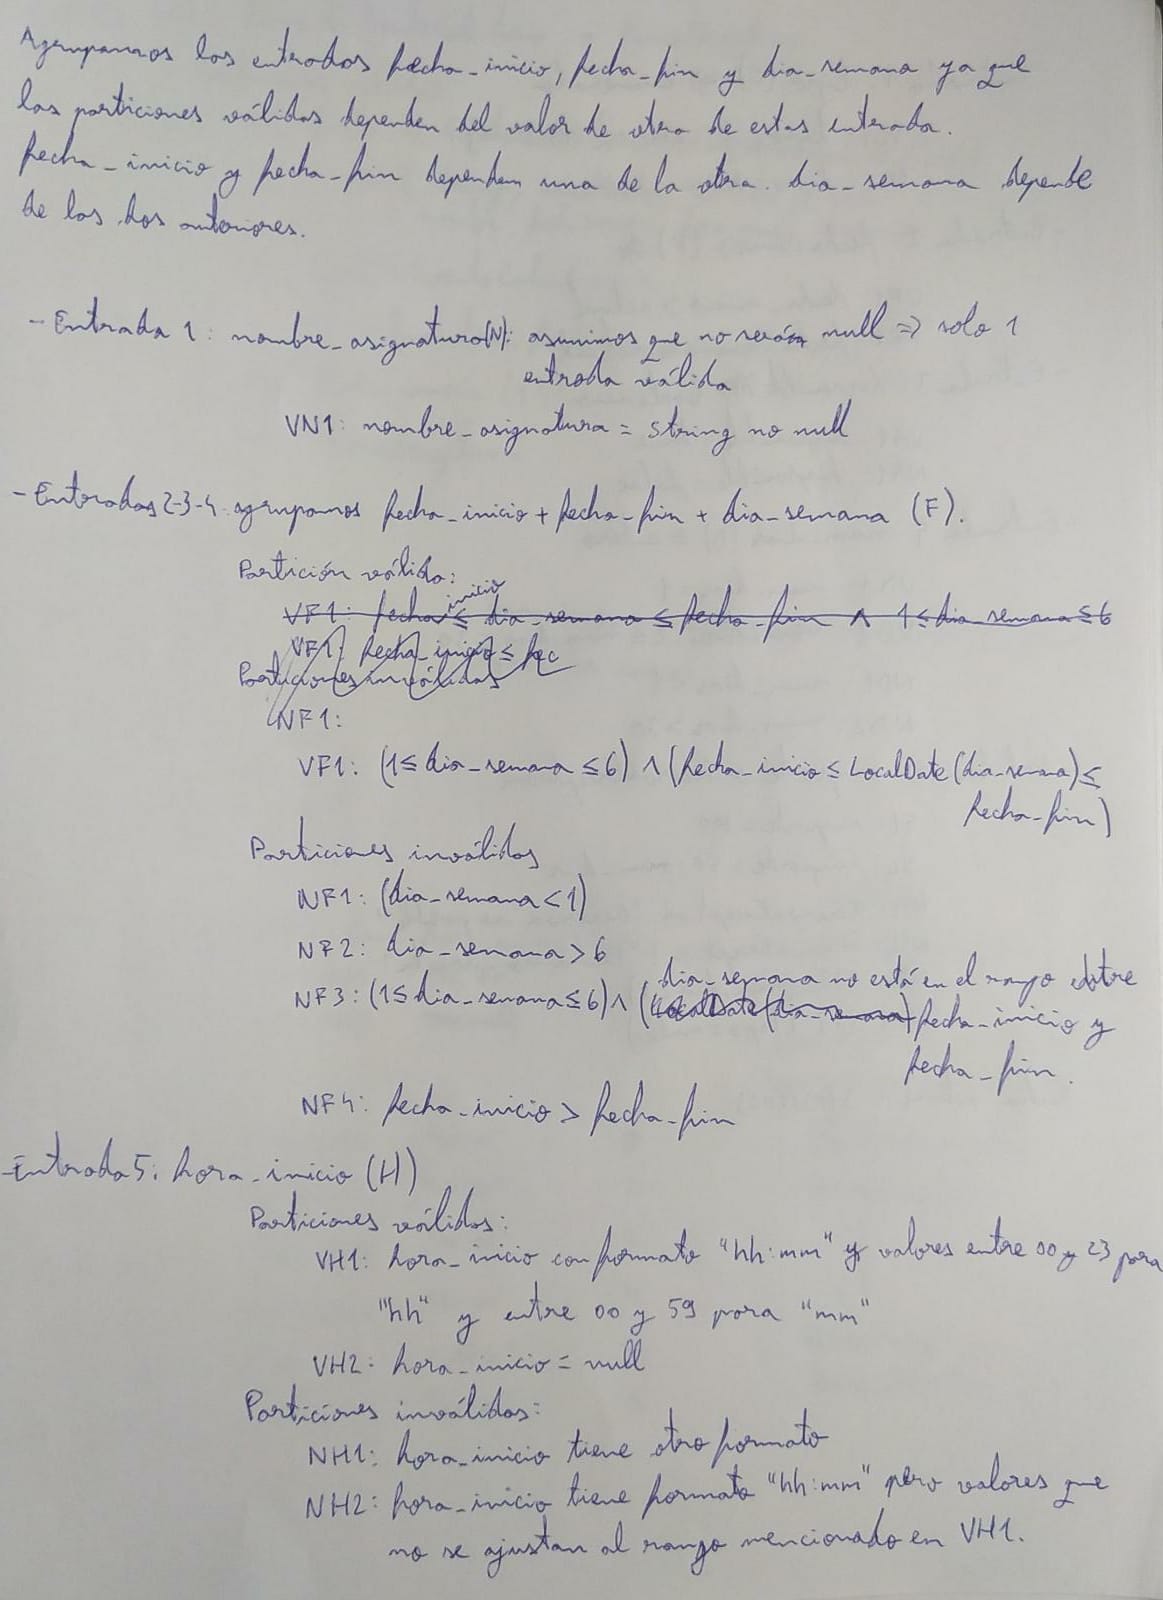 Agrupamos las entradas fecha_inicio, fecha_fin y dia_semana ya que
las particiones válidas dependen del valor de otra de estas entrada.
fecha_inicio y fecha_fin dependen una de la otra. dia_semana depende
de las dos anteriores.
- Entrada 1: nombre_asignatura(N): asumimos que no será null => solo 1
entrada válida
VN1: nombre_asignatura = String no null
- Entradas 2-3-4: agrupamos fecha_inicio + fecha_fin + dia_semana (F).
Partición válida:
VF1: fecha inicio ≤ dia_semana ≤ fecha_fin ∧ 1 ≤ dia_semana ≤ 6
VF1: fecha_inicio ≤ fec
Particiones inválidas
NF1:
VF1: (1 ≤ dia_semana ≤ 6) ∧ (fecha_inicio ≤ LocalDate(dia_semana) ≤
fecha_fin)
Particiones inválidas
NF1: (dia_semana < 1)
NF2: dia_semana > 6
dia_semana no está en el rango entre
NF3: (1 ≤ dia_semana ≤ 6) ∧ (LocalDate(dia_semana) fecha_inicio y
fecha_fin.
NF4: fecha_inicio > fecha_fin
- Entrada 5: hora_inicio (H)
Particiones válidas:
VH1: hora_inicio con formato "hh:mm" y valores entre 00 y 23 para
"hh" y entre 00 y 59 para "mm"
VH2: hora_inicio = null
Particiones inválidas:
NH1: hora_inicio tiene otro formato
NH2: hora_inicio tiene formato "hh:mm" pero valores que
no se ajustan al rango mencionado en VH1.